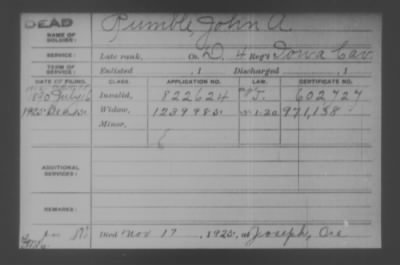 DEAD
Rumble, John A.
NAME OF SOLDIER:
SERVICE: Late rank, Co. D. 4 Reg't Iowa Cav.
TERM OF SERVICE: Enlisted , 1 Discharged , 1
DATE OF FILING. CLASS. APPLICATION NO. LAW. CERTIFICATE NO.
1890 July 16 Invalid, 822624 J. 602727
1925 Dec Widow, 1239983 971,138
Minor,
ADDITIONAL SERVICES:
REMARKS:
Died Nov 17, 1925, at Joseph, Ore